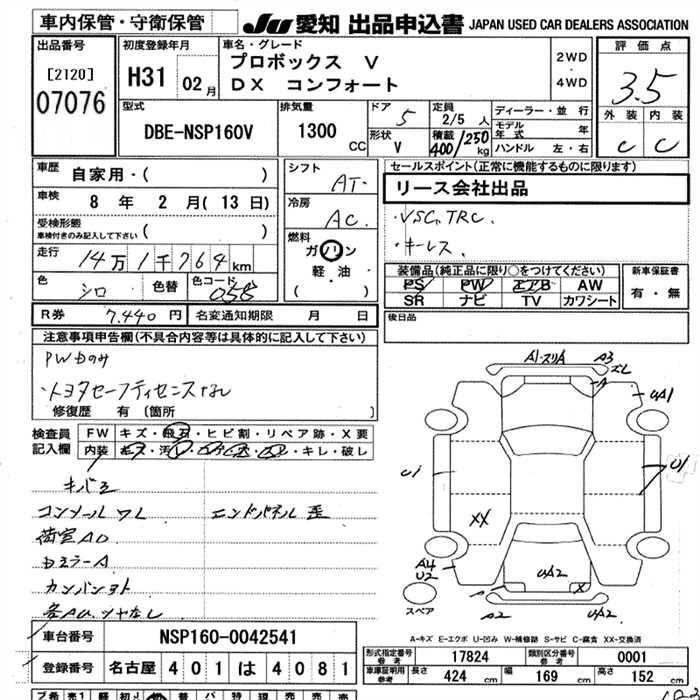 車内保管・守衛保管 JU 愛知 出品申込書 JAPAN USED CAR DEALERS ASSOCIATION
出品番号
[2120]
07076
初度登録年月
H31 02月
車名・グレード
プロボックス V
DX コンフォート
2WD
・
4WD
評価点
3.5
外装 内装
C C
型式
DBE-NSP160V
排気量
1300 CC
ドア
5
形状
V
定員
2/5 人
積載
400/250 kg
ディーラー・並行
モデル年式 年
ハンドル 左・右
車歴
自家用・( )
車検
8 年 2 月( 13 日)
受検形態
車検付きのみ記入して下さい ( )
走行
14万1千764km
色
シロ
色替
色コード
058
シフト
AT.
冷房
AC.
燃料
ガソリン
軽・油
( )
セールスポイント(正常に機能するものに限ります)
リース会社出品
・VSC,TRC.
・キーレス.
装備品(純正品に限り○をつけてください)
PS PW エアB AW
SR ナビ TV カワシート
新車保証書
有・無
後日品
R券 7,440円 名変通知期限 月 日
注意事項申告欄(不具合内容等は具体的に記入して下さい)
・トヨタセーフティセンスなし
修復歴 有 〔箇所 〕
検査員
記入欄
FW キズ・飛石・ヒビ割・リペア跡・X要
内装
キレ・破レ
コンソールワレ エンドパネル歪
A1・スリA A3
ズレ
A
UA1
U1
U1
XX
A4
U2
UA2
X
A2
UA2
スペア
A-キズ E-エクボ U-凹み W-補修跡 S-サビ C-腐食 XX-交換済
車台番号 NSP160-0042541
登録番号 名古屋 401 は 4081
形式指定番号
参考
17824
類別区分番号
参考
0001
車庫証明用
参考
長さ 424 cm 幅 169 cm 高さ 152 cm